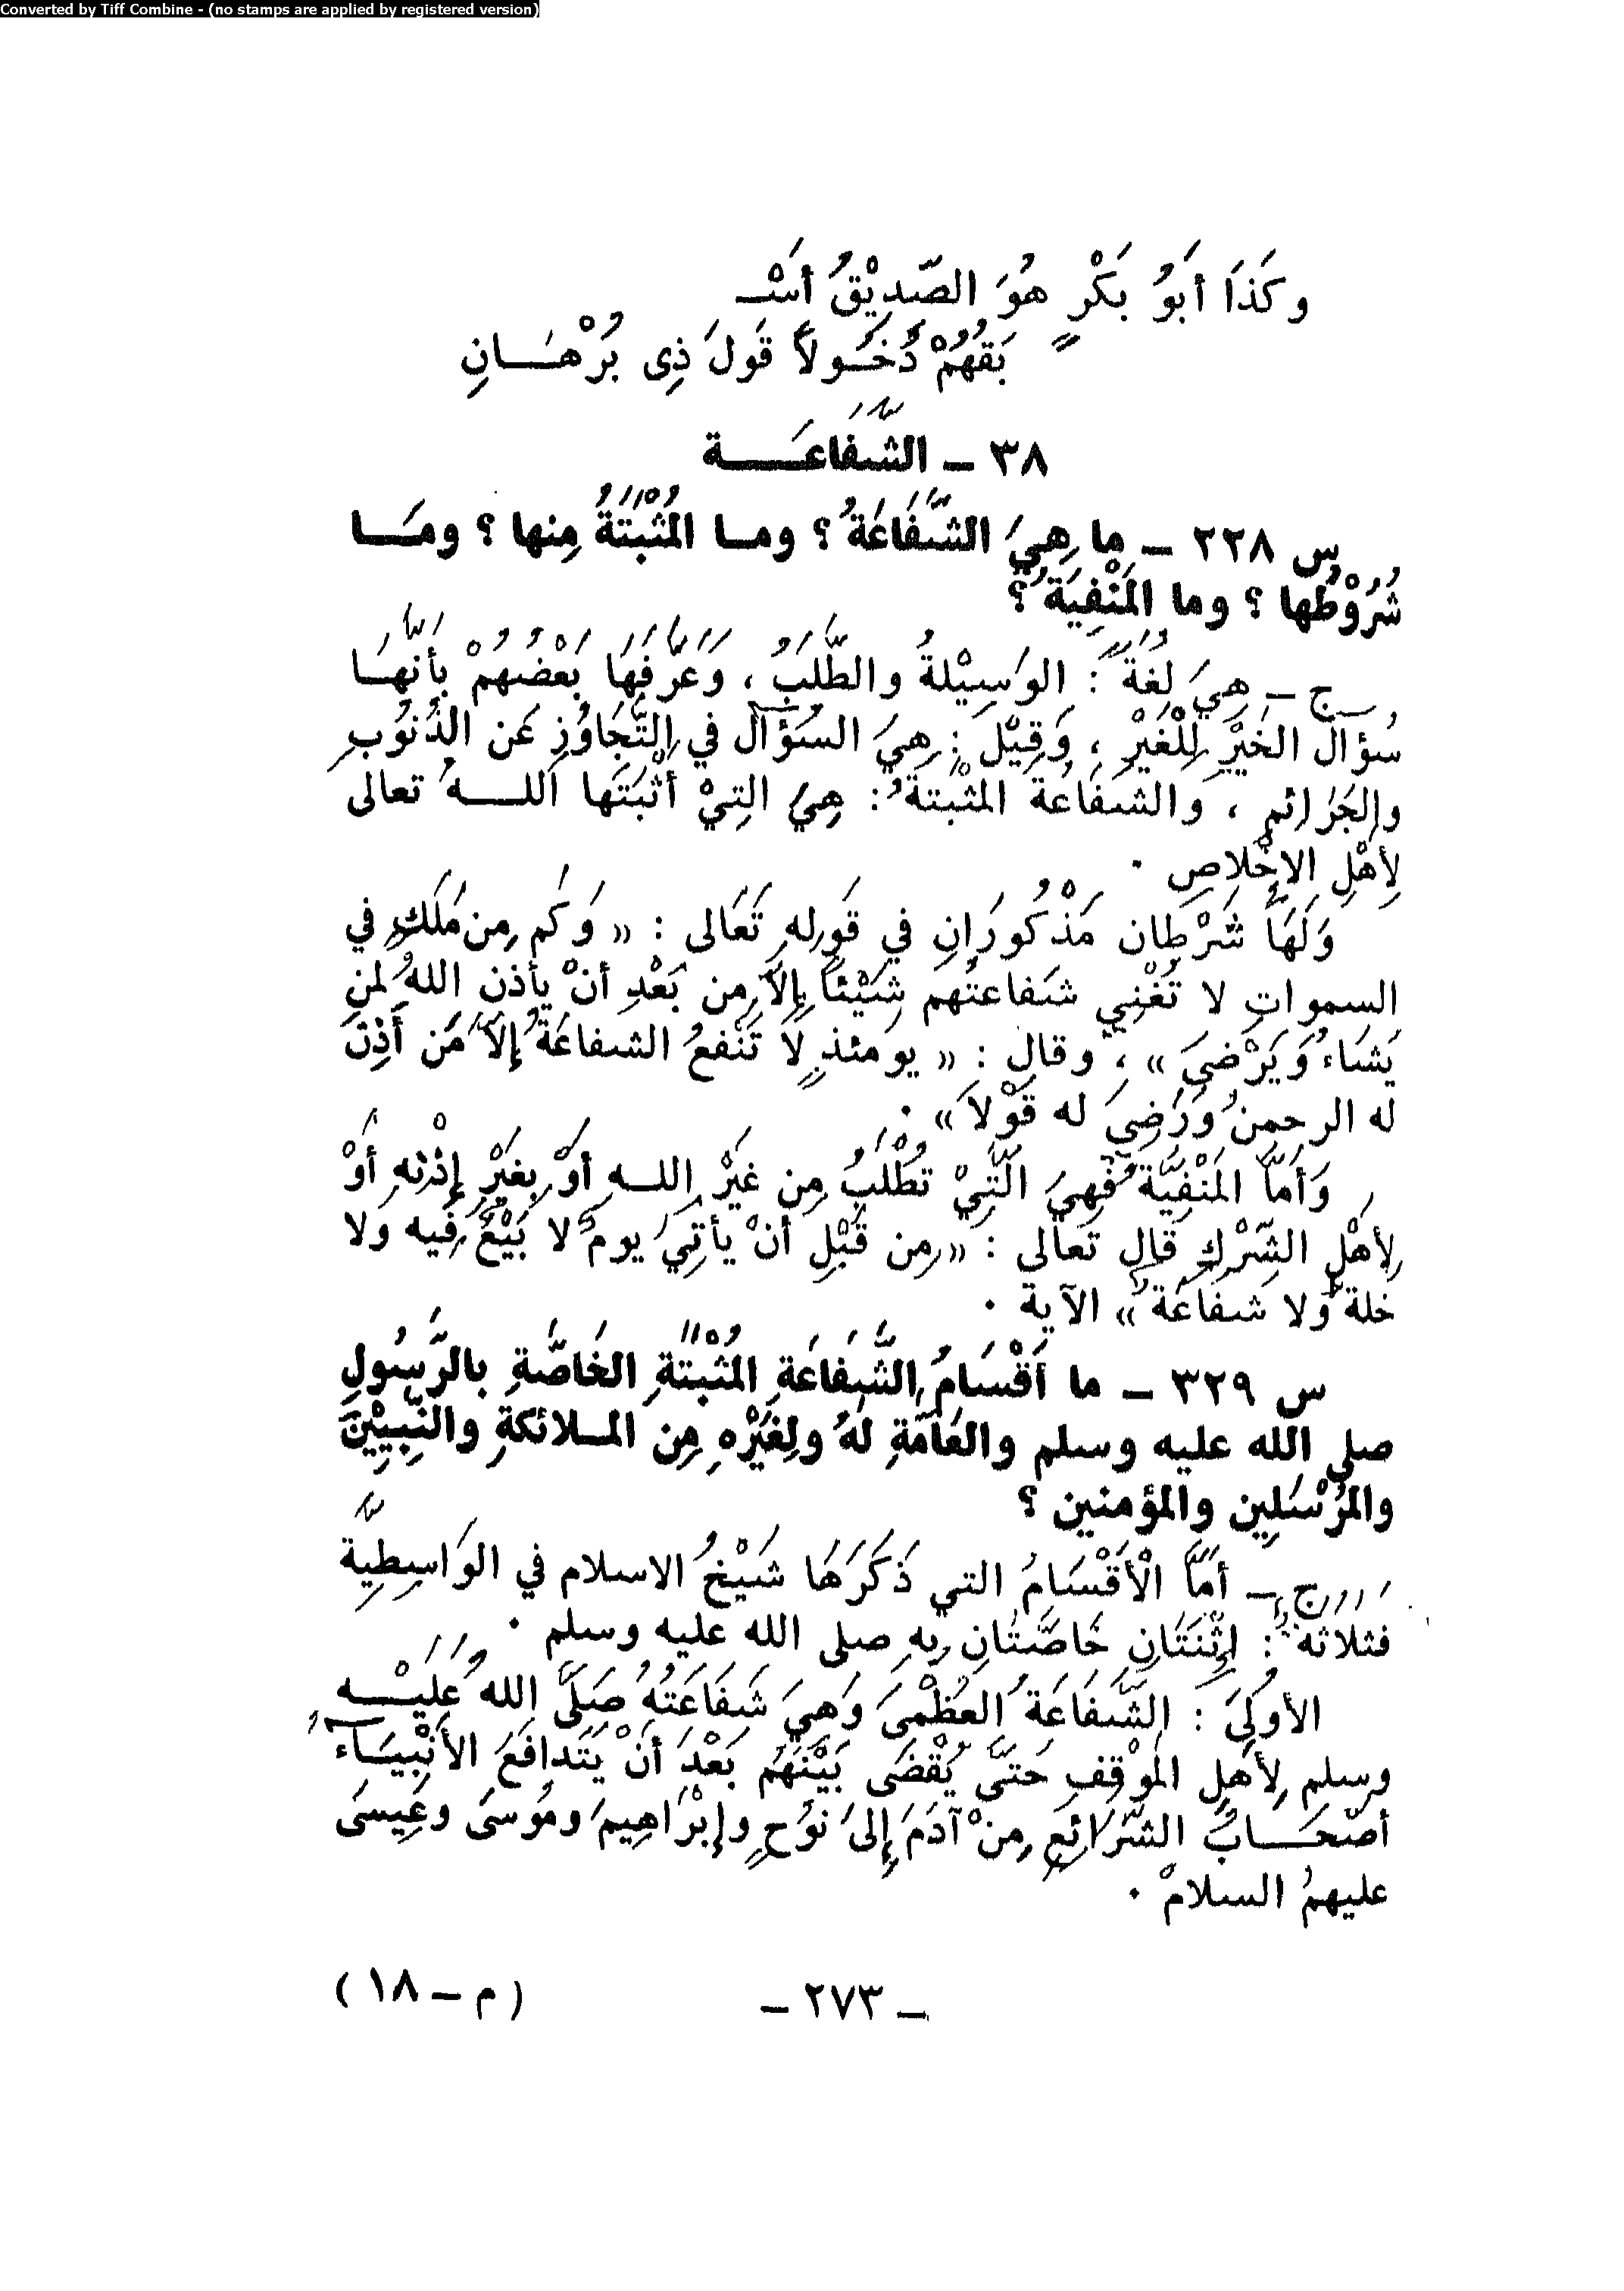 Converted by Tiff Combine - (no stamps are applied by registered version)
وكَذَا أَبُو بَكْرٍ هُوَ الصِّدِيْقُ أَسْــ
بَقَهُمْ دُخَــولاً قَولَ ذِى بُرْهَــانِ
٣٨ ــ الشَّفَاعَــــة
س ٢٢٨ ــ ما هِيَ الشَّفَاعَةُ ؟ ومــا المُثْبَتَةُ مِنها ؟ ومَــا
شُرُوْطُها ؟ وما المَنْفِيَةُ ؟
ج ــ هِيَ لُغَةً : الوَسِيْلةُ والطَّلَبُ ، وَعَرَّفَهَا بَعْضُهُمْ بأنَّهَــا
سُؤالُ الخَيْرِ لِلْغَيْرِ ، وَقِيْلَ : هِيَ السُؤَالُ في التَّجَاوُزِ عَن الذُنوُبِ
والجَرَائمِ ، والشفَاعَةُ المثْبتةُ : هِيَ التِيْ أَثْبَتَها اللــــهُ تعالى
لِأَهْلِ الإِخْلاصِ .
وَلَهَا شَرْطان مَذْكُورَانِ في قَولِهِ تَعَالى : « وَكَم مِن مَلَكٍ في
السمواتِ لا تُغْنِي شفاعتُهم شَيْئاً إلاَّ مِن بَعْدِ أنْ يأذن اللهُ لمنِ
يَشَاءُ وَيَرْضىَ » ، وقال : « يومئذٍ لا تَنْفعُ الشفاعَةُ إلاَّ مَن أَذِنَ
له الرحمنُ وَرَضِيَ له قَوْلاً » .
وَأمَّا المَنْفِيَّة فَهِيَ الَّتِيْ تُطْلَبُ مِن غَيْرِ اللــهِ أوْ بِغَيْرِ إِذْنِهِ أوْ
لِأهْلِ الشِّرْكِ قال تعالى : « مِن قَبْلِ أنْ يأتِيَ يومٌ لا بَيْعٌ فيه ولا
خلةٌ ولا شفاعَةٌ » الآية .
س ٣٢٩ ــ ما أَقْسَامُ الشَّفَاعَةِ المُثْبَتَةِ الخَاصَّةِ بالرَّسُولِ
صلى الله عليه وسلم والعَامَّةِ لَهُ ولِغَيْرِهِ مِن المــلائكةِ والنَّبِيِيْنَ
والمُرْسَلِين والمؤمنين ؟
ج ــ أمَّا الْأَقْسَامُ التي ذَكَرَهَا شَيْخُ الاسلام في الوَاسِطِيَّة
فثلاثة : اثْنَتَانِ خَاصَّتَانِ بِهِ صلى الله عليه وسلم .
الأوُلىَ : الشَّفَاعَةُ العُظْمىَ وَهِيَ شَفَاعَتُهُ صَلَّى اللهُ عَلَيْــهِ
وسلم لِأَهلِ المَوْقِفِ حَتَّى يُقْضَى بَيْنَهُم بَعْدَ أنْ يَتَدافَعَ الأَنْبِيَــاء
أصْحَـــابُ الشَّرَائعِ مِنْ آدَمَ إلىَ نوُحٍ وإبْرَاهِيمَ ومُوسىَ وعِيسىَ
عليهمُ السلامْ .
ــ ٢٧٣ ــ
( م ــ ١٨ )